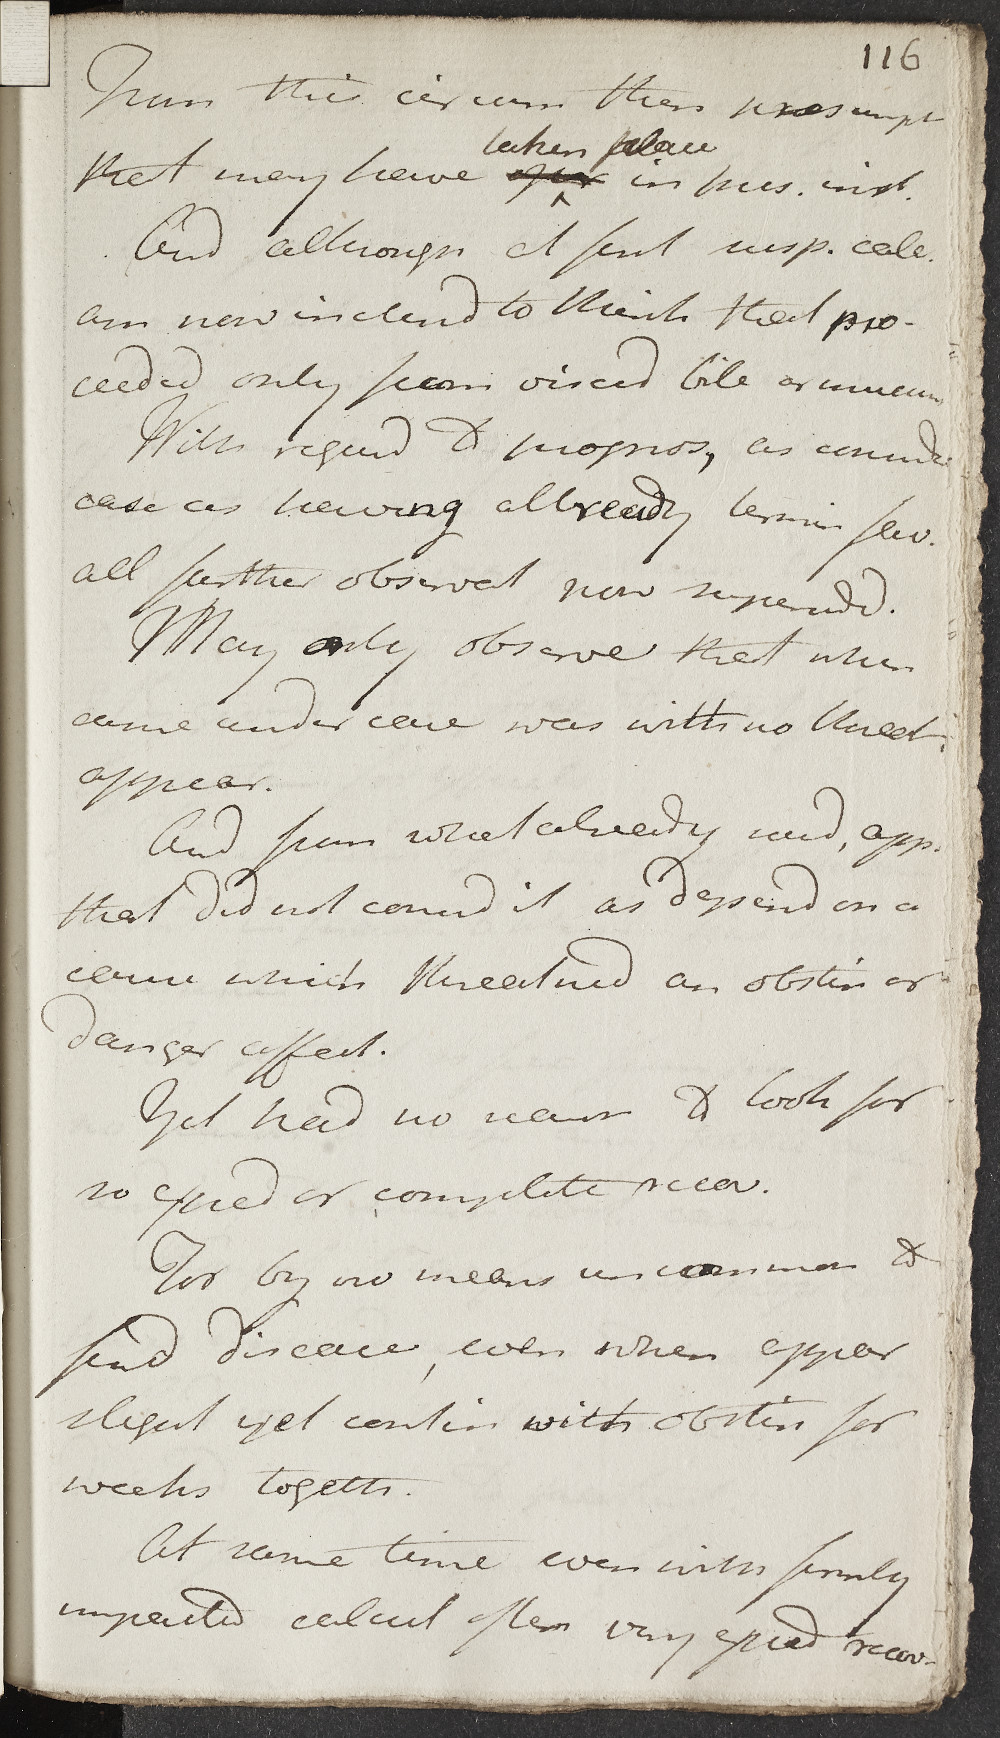 116
From this circum then presumpt
taken place
that may have in pres. inst.
And although at first susp. calc.
am now inclend to think that pro-
ceeded only from viscid bile or mucus
With regard to prognos, as consid
case as having allready termin fav.
all further observat now supersedd.
May only observe that when
came under care was with no threat.
appear.
And from what already said, app.
that did not consid it as depend on a
cause which threatned an obstin or
danger affect.
Yet had no reason to look for
so speed or complete recov.
For by no means uncommon to
find disease, even when appear
slight yet contin with obstin for
weeks togeth.
At same time even with firmly
impacted calculi often very speed recov-